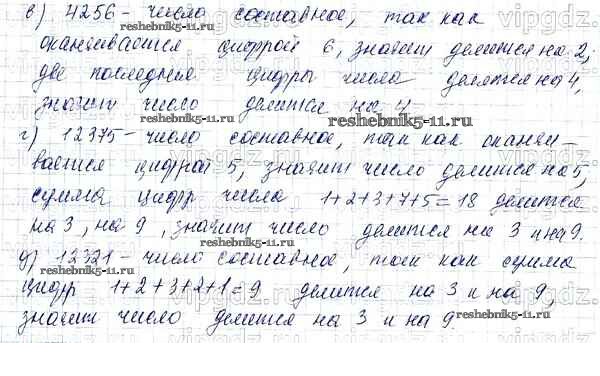 в) 4256 – число составное, так как
оканчивается цифрой 6, значит делится на 2;
две последние цифры числа делятся на 4,
значит число делится на 4.
reshebnik5-11.ru
reshebnik5-11.ru
г) 12375 – число составное, так как оканчи-
вается цифрой 5, значит число делится на 5,
сумма цифр числа 1+2+3+7+5=18 делится
на 3, на 9, значит число делится на 3 и на 9.
reshebnik5-11.ru
reshebnik5-11.ru
д) 12321 – число составное, так как сумма
цифр 1+2+3+2+1=9 делится на 3 и на 9,
значит число делится на 3 и на 9.
reshebnik5-11.ru
vipgdz.